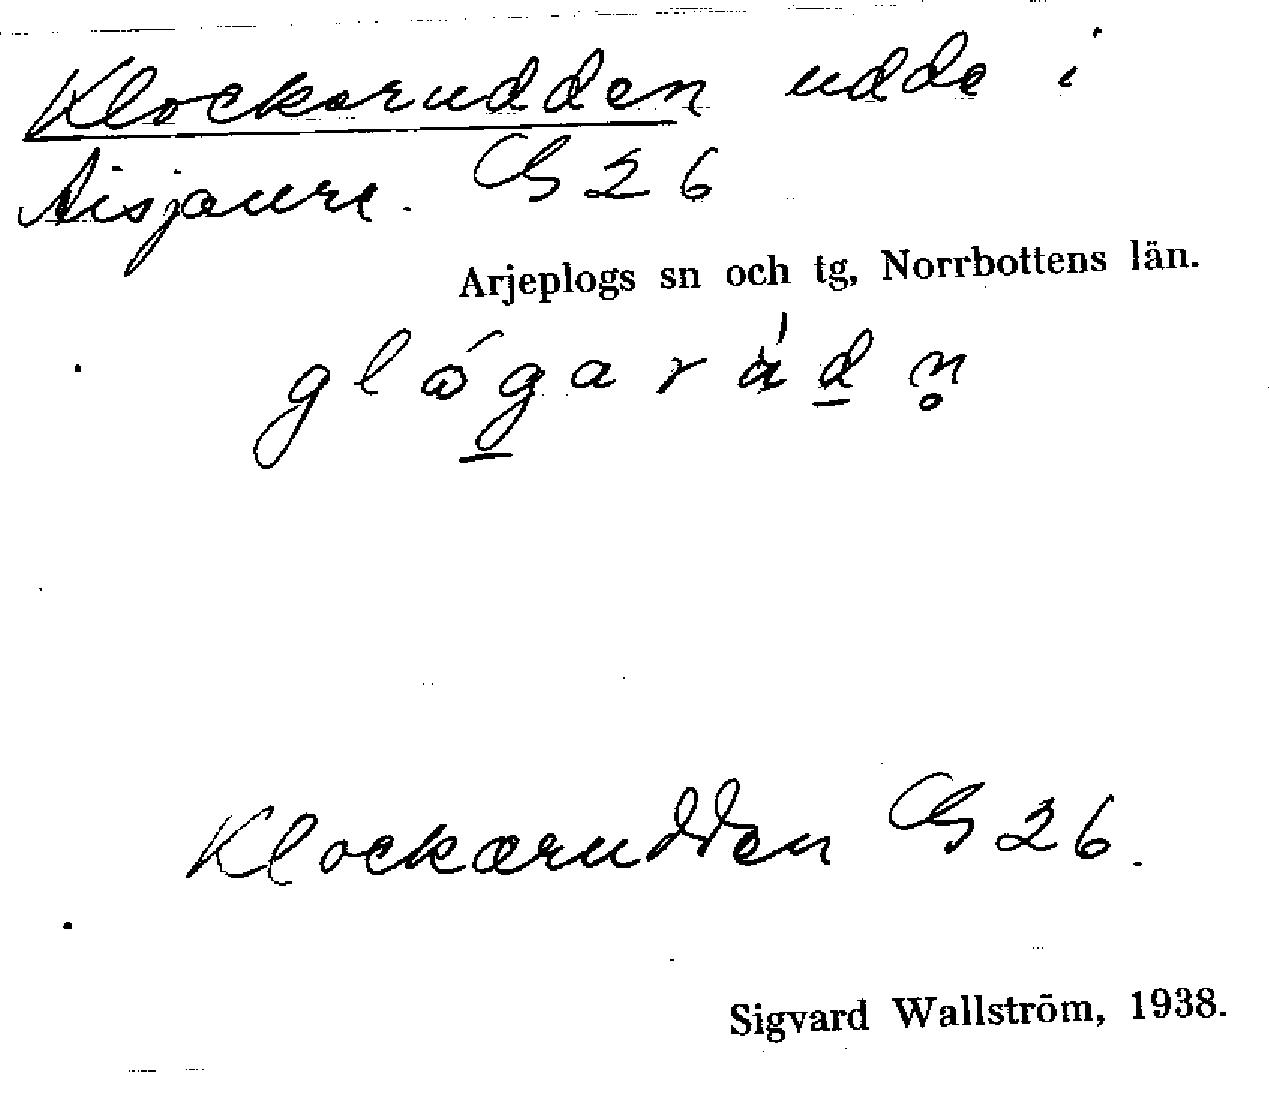 Klockarudden udde i
Aisjaure. G 26
Arjeplogs sn och tg, Norrbottens län.
Klockarudden G 26.
Sigvard Wallström, 1938.